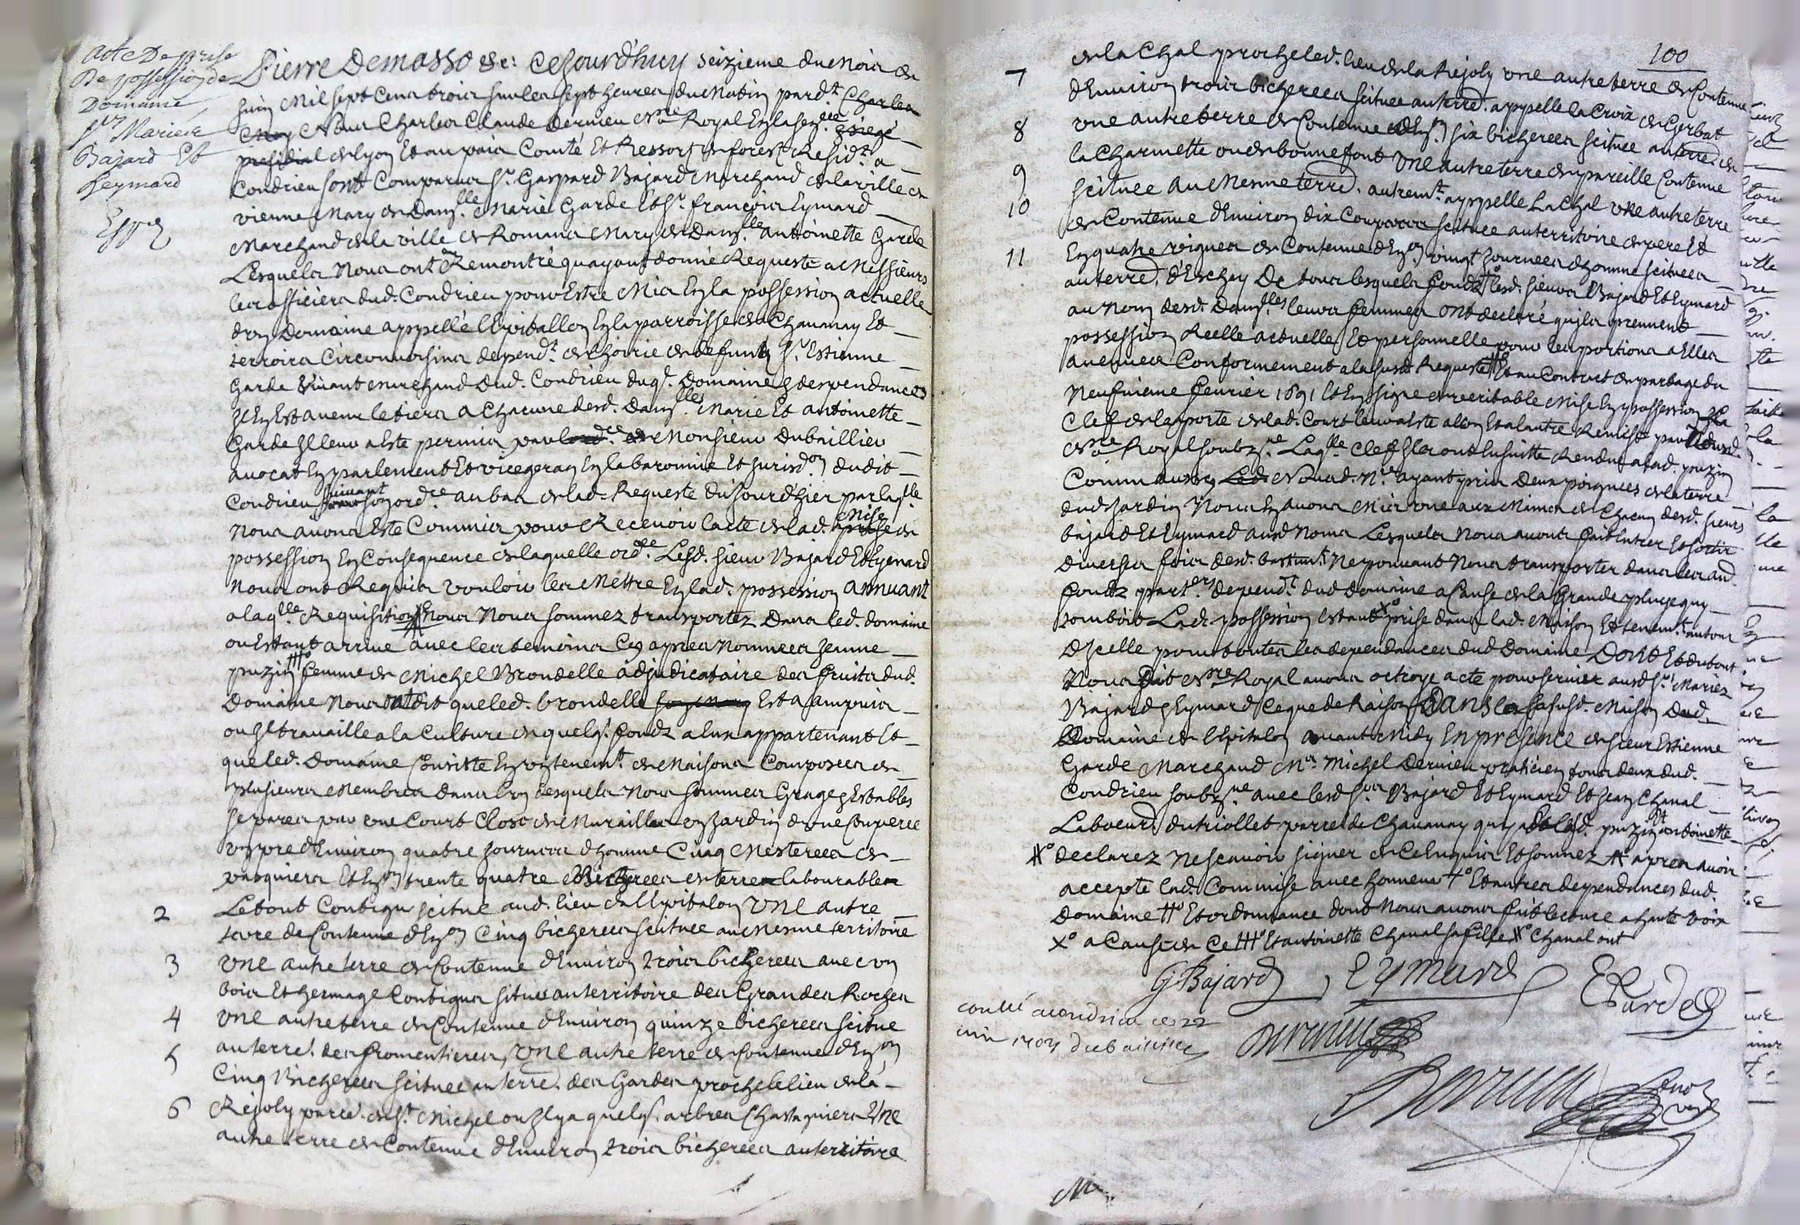 acte De prise
De possession de
Domaine
srs Mariée
Bajard Et
Eymard
Expé
Pierre Demasso &c: Cejourd'huy seizieme du Mois de
Juin Mil sept Cens trois sur les sept heures du Matin pardt Charles
Nous Charles Claude Dervieu nre Royal En la sen
presidial de Lyon Et au païs Comté Et Ressort de forest Residt a
Condrieu sont Comparus sr. Gaspard Bajard Marchand de la ville de
vienne Mary de Damlle Marie Garde Et sr. françois Eymard
Marchand de la ville de Romans Mary de Damlle antoinette Garde
Lesquels Nous ont Remontré qu'ayant donné Requeste a Messieurs
les officiers dud. Condrieu pour Estre Mis En la possession actuelle
d'un Domaine appellé l'Epitallon En la parroisse de Chavanay Et
terroirs Circonvoisins dependt. de l'hoirie de defunt sr. Estienne
Garde vivant Marchand dud. Condrieu duql. Domaine & despendances
Il En Est avenu le tiers a Chacune desd. Damlles Marie Et antoinette
Garde Il leur a Este permis par de Monsieur Dubaillier
avocat En parlement Et vicegeran En la baronnie Et Jurisdon dudit
Condrieu suivant son ordce au bas de lad. Requeste du Jourd'hier par laqlle
Nous avons Este Commis pour Recevoir l'acte de lad. Mise de
possession En Consequence de laquelle ordce. Lesd. sieur Bajard Et Eymard
Nous ont Requis vouloir les Mettre En lad. possession annuant
a laqlle Requisition Nous Nous sommes transportez Dans led. domaine
ou Estant arrivé avec les temoins Cy apres Nommees Jeanne
puzin femme de Michel Brondelle adjudicataire des fruits dud.
Domaine Nous ont dit que led. brondelle Est a ampuis
ou Il travaille a la Culture de quelq. fondz a luy appartenant Et
que led. Domaine Consiste En un tenemt. de Maisons Composees de
plusieurs Membres dans l'un desquels Nous sommes Grage & Estables
separes par une Court Close de Murailles un Jardin d'une Couperee
un pre d'Environ quatre Journees d'homme Cinq Mesterees de
pasquiers Et Eon trente quatre Bicherees de terre labourable
2 Le tout Contigu scitué aud. lieu de l'Epitalon Une autre
terre de Contenue d'Eon Cinq bicherees scituee au Mesme territoire
3 Une autre terre de Contenue d'Environ trois bicherees avec un
bois Et hermage Contigus situés au territoire des Grandes Roches
4 Une autre terre de Contenue d'Environ quinze bicherees scitue
au terre. des fromentieres, Une autre terre de Contenue d'Eon
5 Cinq Bicherees scituee au terre. des Gardes proche le lieu de la
6 Rejoly parce. de st. Michel ou Il y a quelqs. arbres Chastagniers Une
autre terre de Contenue d'Environ trois bicherees au territoire
100
de la Chal proche led. lieu de la Rejoly une autre terre de Contenue
7 d'Environ trois bicherees scituee au terre. appellé la Croix de Gerbat
8 Une autre terre de Contenue d'Eon six bicherees scituee au terre de
la Charmette ou de bonnefont Une autre terre de pareille Contenue
9 scituee au Mesme terre. autremt. appellé La Chal une autre terre
10 de Contenue d'Environ dix Couperees scituee au territoire de pere Et
11 En quatre vignes de Contenue d'Eon vingt Journees d'homme scituees
au terre. d'Eschey De tous lesquels fondz lesd. sieurs Bajard Et Eymard
au Nom desd. Damlles leurs femmes ont declaré qu'ils prennent
possession Reelle actuelle Et personnelle pour les portions a Elles
avenues Conformement a la susd. Requeste Et au Contract de partage du
Neufvieme fevrier 1691 Et En signe de veritable Mise En possession La
Clef de la porte de lad. Court leur a Este allon Et a l'autre Remise par Nousd.
nre Royal soubzne. Laqlle Clef Ils ont Ensuitte Rendue a lad. puzin
Comm aussy Nousd. nre ayant pris Deux poignees de la terre
dud Jardin Nous En avons Mis une aux Mains de Chacun desd. sieurs
bajard Et Eymard ausd Nous Lesquels Nous avons fait Entrer Et sortir
diverses fois desd. bastimts. Ne pouvant Nous transporter dans les au.
fondz parters. dependt. dud domaine a Cause de la Grande pluye quy
tomboit Lad. possession estant xo prise dans lad. Maison Et tenemt. autour
d'Icelle pour toutes les dependances dud Domaine Dont Et du tout
Nous Dit nre Royal avons octroyé acte pour servir ausd srs Mariez
Bajard & Eymard Ce que de Raison Dans la susd. Maison Dud.
Domaine de l'Epitalon avant Midy En presence de sieur Estienne
Garde Marchand Mr. Michel Dervieu praticien tous deux dud.
Condrieu soubzne avec lesd srs Bajard Et Eymard Et Jean Chanal
Laboeur. du triollet parce de Chavanay quy a Et lad. puzin Et antoinette
declarez Ne scavoir signer de Ce Enquis Et sommez apres avoir
accepté lad. Commise avec honneur Et autres dependances dud.
Domaine Et ordonnance dont Nous avons fait lecture a haute voix
xo a Cause de Ce Et antoinette Chanal sa fille Chanal ont
G Bajard Eymard E Garde
conllé a condrieu ce 22
juin 1703 dubaillier
Dervieu
Dervieu